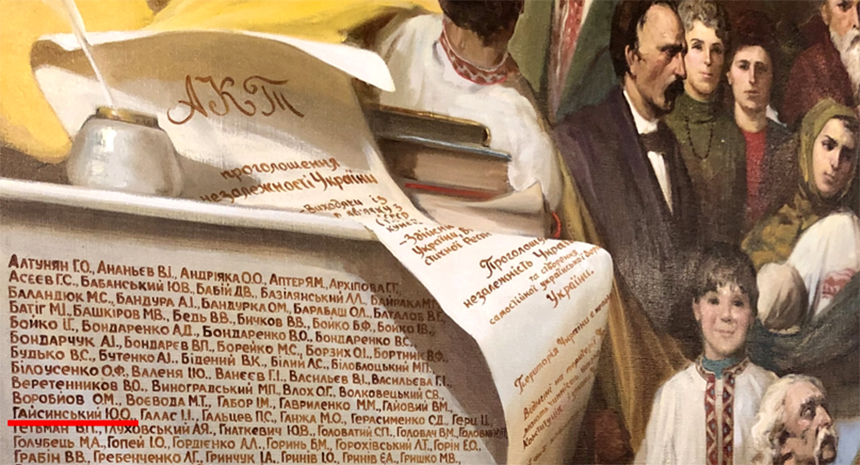 АКТ
проголошення
незалежності України
-Виходячи із
-Здійсн
України, В
Проголошу
незалежність Украї
та створення
самостійної української
України.
Територія України є
Алтунян Г.О., Ананьєв В.І., Андріяка О.О., Аптер Я.М., Архіпова Г.Г.,
Асєєв Г.С., Бабанський Ю.В., Бабій Д.В., Базілянський Л.Л., Байрака М.
Баландюк М.С., Бандура А.І., Бандурка О.М., Барабаш О.Л., Баталов В.Г.
Батіг М.І., Башкіров М.В., Бедь В.В., Бичков В.В., Бойко Б.Ф., Бойко І.В.,
Бойко І.Г., Бондаренко А.Д., Бондаренко В.О., Бондаренко В.С.,
Бондарчук А.І., Бондарєв В.П., Борейко М.С., Борзих О.І., Бортник В.Ф.
Будько В.С., Бутенко А.І., Бідений В.К., Білий А.С., Білоблоцький М.П.,
Білоусенко О.Ф., Валеня І.Ю., Ванєєв Г.І., Васильєв В.І., Васильєва Г.І.,
Веретенников В.О., Виноградський М.П., Влох О.Г., Волковецький С.В.,
Воробйов О.М., Воєвода М.Т., Габор І.М., Гавриленко М.М., Гайовий В.М.,
Гайсинський Ю.О., Галас І.І., Гальцев П.С., Ганжа М.О., Герасименко С.Д., Герц І.І.,
Гетьман В.П., Глуховський А.Я., Гнаткевич Ю.В., Головатий С.П., Головач В.М.,
Голубець М.А., Гопей І.О., Гордієнко А.Л., Горинь Б.М., Горохівський Л.Т., Горін Е.О.
Грабін В.В., Гребенченко Л.Г., Гринчук І.А., Гринів І.О., Гринів Є.А., Гришко М.В.,